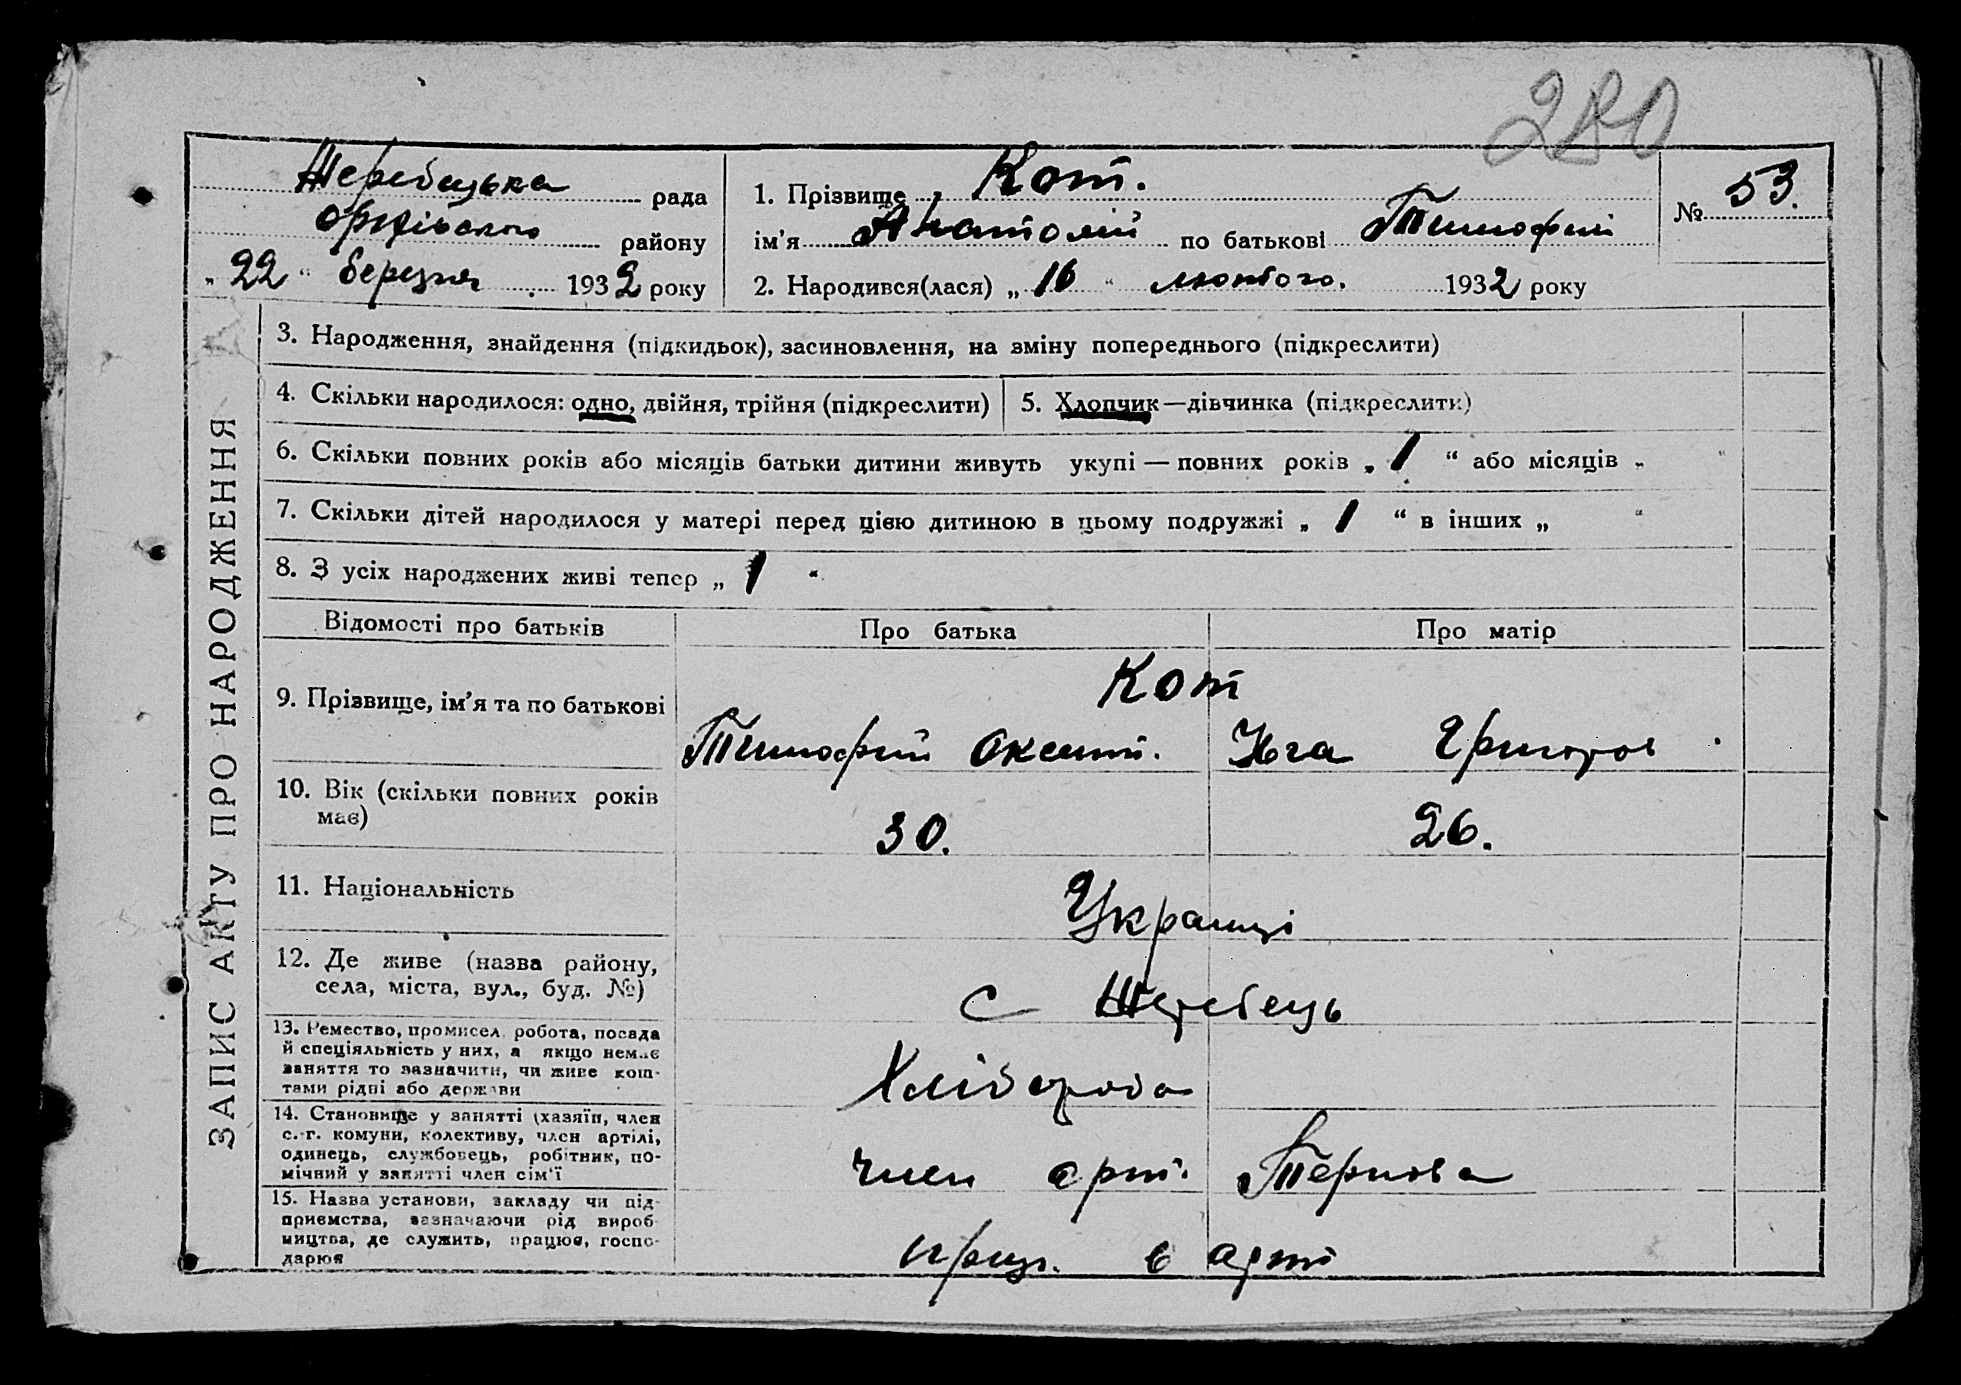 280
Жеребецька рада
Оріхівського району
„22“ березня 1932 року
1. Прізвище Кот.
ім’я Анатолій по батькові Тимофій
№ 53.
2. Народився(лася) „16“ лютого. 1932 року
ЗАПИС АКТУ ПРО НАРОДЖЕННЯ
3. Народження, знайдення (підкидьок), засиновлення, на зміну попереднього (підкреслити)
4. Скільки народилося: одно, двійня, трійня (підкреслити)
5. Хлопчик—дівчинка (підкреслити)
6. Скільки повних років або місяців батьки дитини живуть укупі — повних років „1“ або місяців „ “
7. Скільки дітей народилося у матері перед цією дитиною в цьому подружжі „1“ в інших „ “
8. З усіх народжених живі тепер „1“
Відомості про батьків
Про батька
Про матір
9. Прізвище, ім’я та по батькові
Кот
Тимофій Оксент.
Григоров
10. Вік (скільки повних років
має)
30.
26.
11. Національність
Українці
12. Де живе (назва району,
села, міста, вул., буд. №)
с Жеребець
13. Ремество, промисел, робота, посада
й спеціяльність у них, а якщо немає
заняття то зазначити, чи живе кош-
тами рідні або держави
Хлібороба
14. Становище у занятті (хазяїн, член
с.-г. комуни, колективу, член артілі,
одинець, службовець, робітник, по-
мічний у занятті член сім’ї
член арт. Тернова
15. Назва установи, закладу чи під-
приємства, зазначаючи рід вироб-
ництва, де служить, працює, госпо-
дарює
прац. в арті